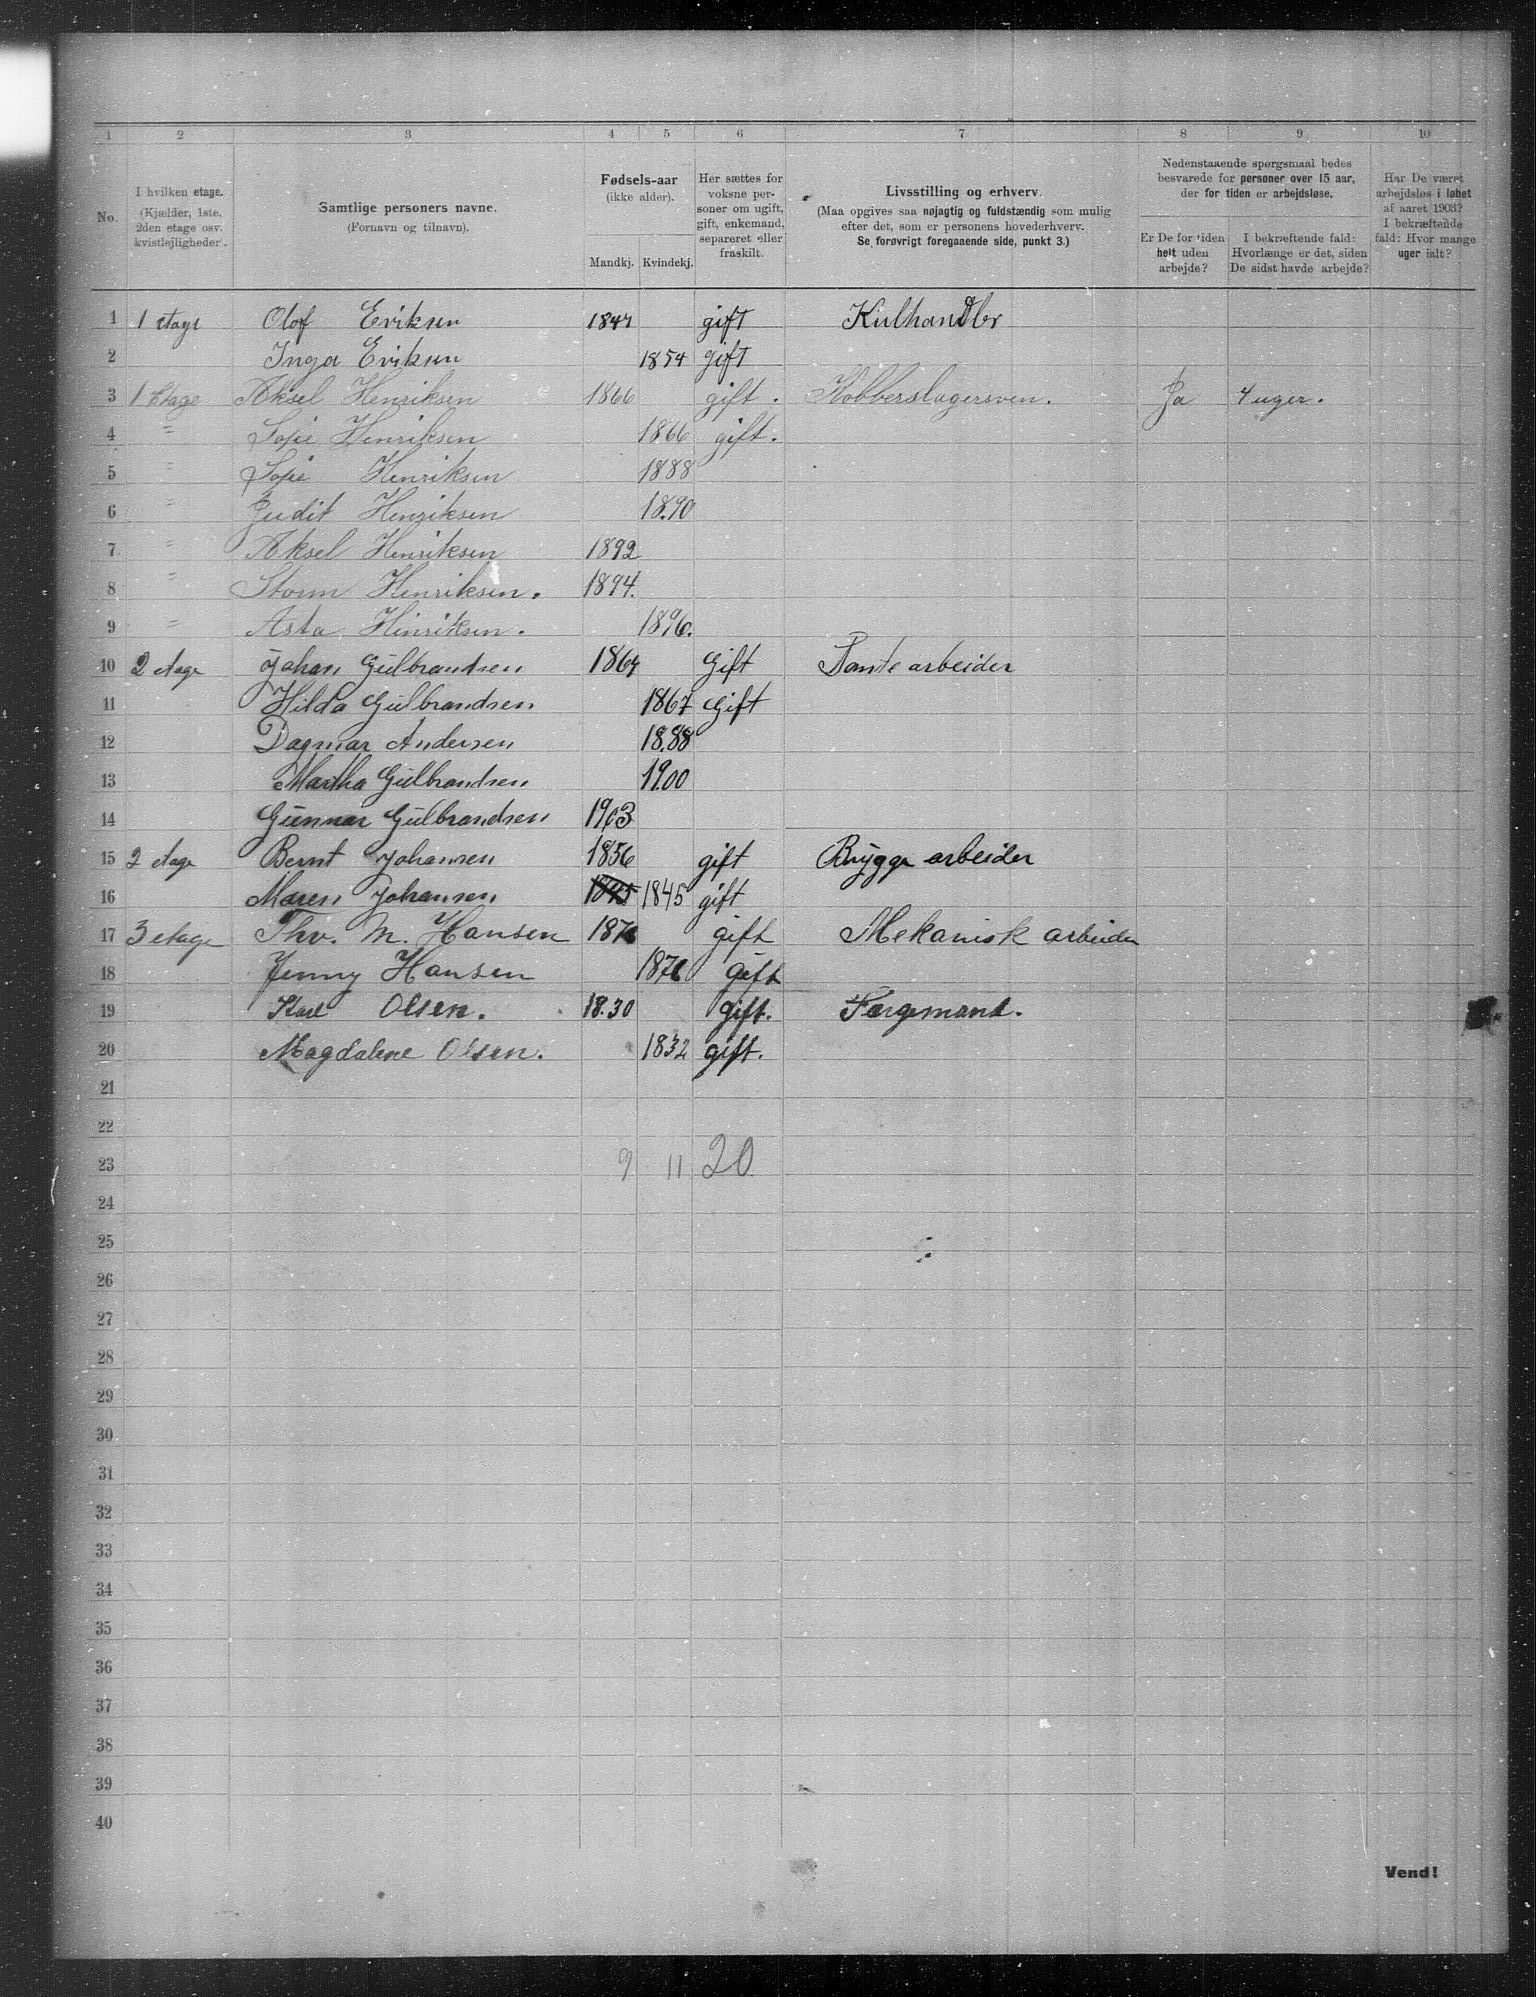 1 2 3 4 5 6 7 8 9 10
No.
I hvilken etage. (Kjælder, 1ste, 2den etage osv. kvistlejligheder.
Samtlige personers navne. (Fornavn og tilnavn).
Fødsels-aar (ikke alder). Mandkj. Kvindekj.
Her sættes for voksne personer om ugift, gift, enkemand, separeret eller fraskilt.
Livsstilling og erhverv. (Maa opgives saa nøjagtig og fuldstændig som mulig efter det, som er personens hovederhverv. Se forøvrigt foregaaende side, punkt 3.)
Nedenstaaende spørgsmaal bedes besvarede for personer over 15 aar, der for tiden er arbejdsløse.
Er De for tiden helt uden arbejde?
I bekræftende fald: Hvorlænge er det, siden De sidst havde arbejde?
Har De været arbejdsløs i løbet af aaret 1903? I bekræftende fald: Hvor mange uger ialt?
1 1 etage Olof Eriksen 1847 gift Kulhandler
2 Inga Eriksen 1854 gift
3 1 Etage Aksel Henriksen 1866 gift. Kobberslagersven. Ja 4 uger.
4 " Sofie Henriksen 1866 gift.
5 " Sofie Henriksen 1888
6 " Judit Henriksen 1890
7 " Aksel Henriksen 1892
8 " Storm Henriksen. 1894.
9 " Asta Hinriksen. 1896.
10 2 etage Johan Gulbrandsen 1864 Gift Tomtearbeider
11 Hilda Gulbrandsen 1867 Gift
12 Dagmar Andersen 1888
13 Martha Gulbrandsen 1900
14 Gunnar Gulbrandsen 1903
15 2 etage Bernt Johansen 1856 gift Brygge arbeider
16 Maren Johansen 1845 1845 gift
17 3 etage Thv. M. Hansen 187 gift Mekanisk arbeider
18 Jenny Hansen 1876 gift
19 Karl Olsen. 18.30 gift. Færgemand.
20 Magdalene Olsen. 1832 gift.
21
22
23 9 11 20
24
25
26
27
28
29
30
31
32
33
34
35
36
37
38
39
40
Vend!